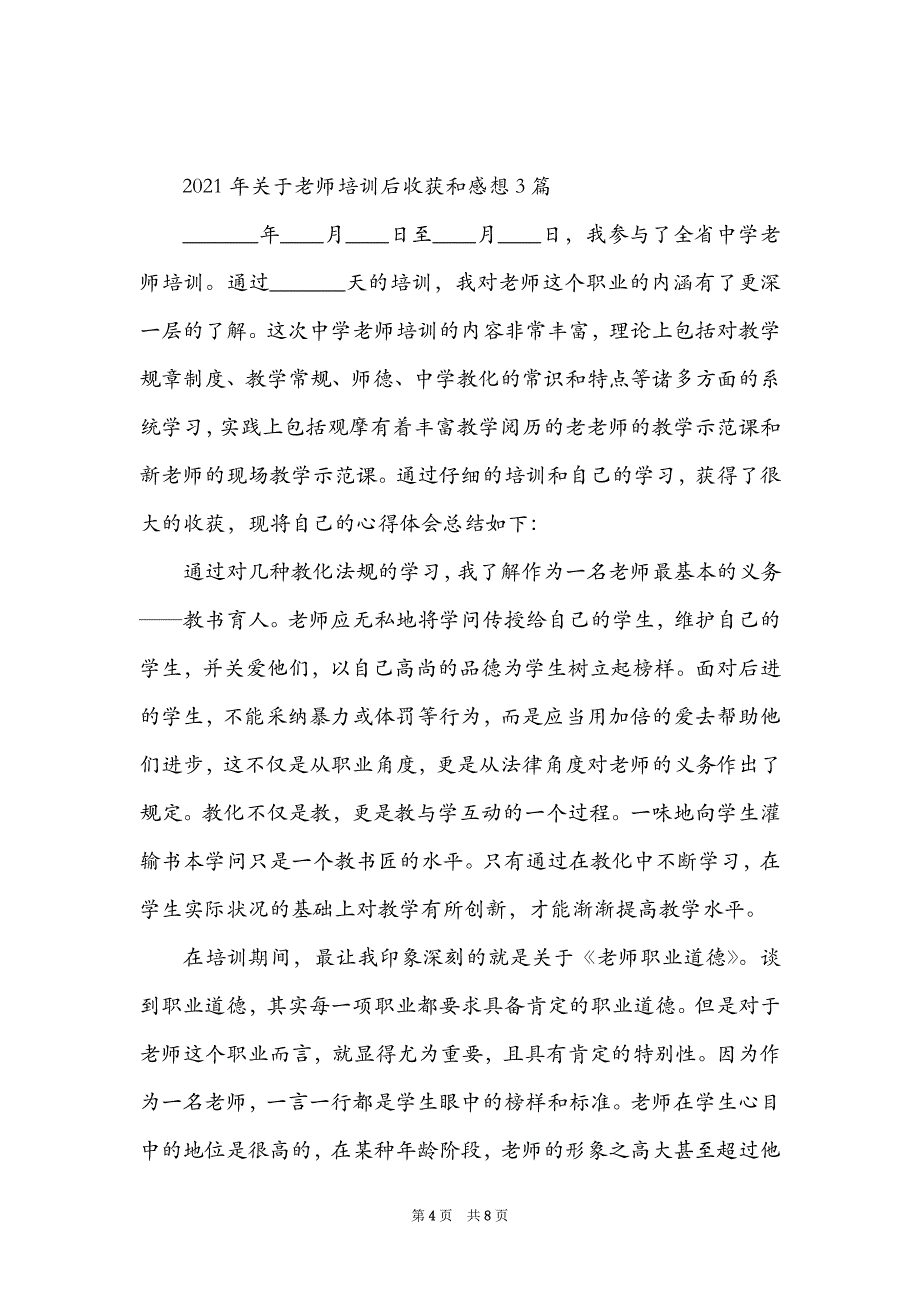 2021 年关于老师培训后收获和感想 3 篇
_______年____月____日至____月____日，我参与了全省中学老
师培训。通过_______天的培训，我对老师这个职业的内涵有了更深
一层的了解。这次中学老师培训的内容非常丰富，理论上包括对教学
规章制度、教学常规、师德、中学教化的常识和特点等诸多方面的系
统学习，实践上包括观摩有着丰富教学阅历的老老师的教学示范课和
新老师的现场教学示范课。通过仔细的培训和自己的学习，获得了很
大的收获，现将自己的心得体会总结如下：
通过对几种教化法规的学习，我了解作为一名老师最基本的义务
——教书育人。老师应无私地将学问传授给自己的学生，维护自己的
学生，并关爱他们，以自己高尚的品德为学生树立起榜样。面对后进
的学生，不能采纳暴力或体罚等行为，而是应当用加倍的爱去帮助他
们进步，这不仅是从职业角度，更是从法律角度对老师的义务作出了
规定。教化不仅是教，更是教与学互动的一个过程。一味地向学生灌
输书本学问只是一个教书匠的水平。只有通过在教化中不断学习，在
学生实际状况的基础上对教学有所创新，才能渐渐提高教学水平。
在培训期间，最让我印象深刻的就是关于《老师职业道德》。谈
到职业道德，其实每一项职业都要求具备肯定的职业道德。但是对于
老师这个职业而言，就显得尤为重要，且具有肯定的特别性。因为作
为一名老师，一言一行都是学生眼中的榜样和标准。老师在学生心目
中的地位是很高的，在某种年龄阶段，老师的形象之高大甚至超过他
第 4 页 共 8 页